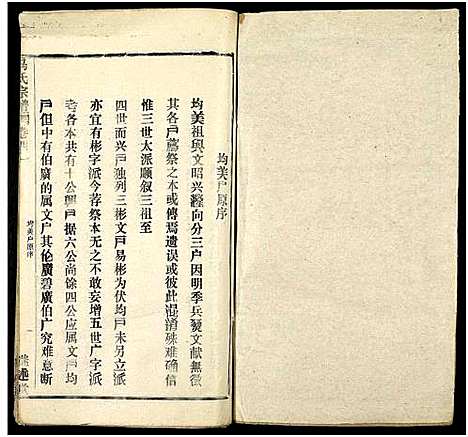 均美户原序
均美祖與文昭兴瀅向分三户因明季兵燹文献無徵
其各户薦祭之本或傳焉遗误或彼此混淆殊难确信
惟三世太派顺叙三祖至
四世而兴户独列三彬文户易彬为伏均户未另立派
亦宜有彬字派今荐祭本无之不敢妄增五世广字派
考各本共有十公興户据六公高馀四公应属文户均
户但中有伯廣的属文户其伦廣碧廣伯广究难意断
氏宗譜
卷四
均美户原序
一